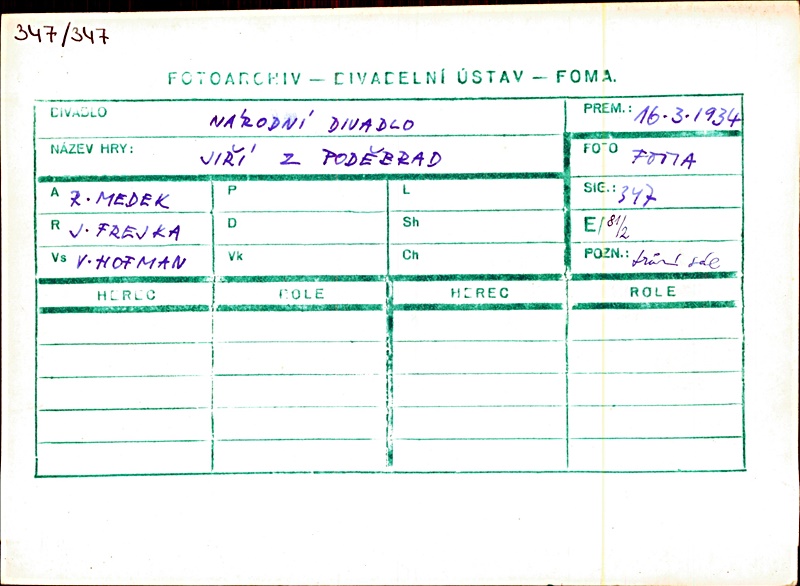 347/347
FOTOARCHIV — DIVADELNÍ ÚSTAV — FOMA.
DIVADLO NÁRODNÍ DIVADLO PREM.: 16.3.1934
NÁZEV HRY: JIŘÍ Z PODĚBRAD FOTO FOMA
A R. MEDEK P L SIG.: 347
R J. FREJKA D Sh E/81/2
Vs V. HOFMAN Vk Ch POZN.:
HEREC ROLE HEREC ROLE